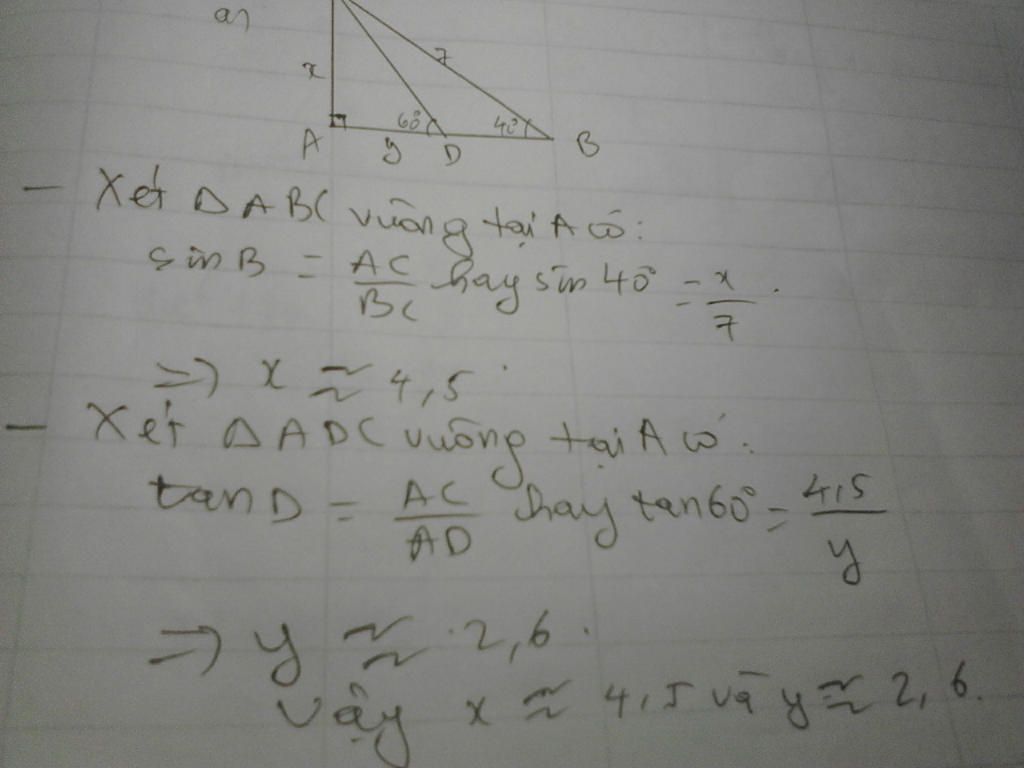 a)
x
7
60°
40°
A
y
D
B
- Xét △ABC vuông tại A có:
sin B = AC/BC hay sin 40° = x/7.
=> x ≈ 4,5
- Xét △ADC vuông tại A có:
tan D = AC/AD hay tan 60° = 4,5/y
=> y ≈ 2,6.
Vậy x ≈ 4,5 và y ≈ 2,6.